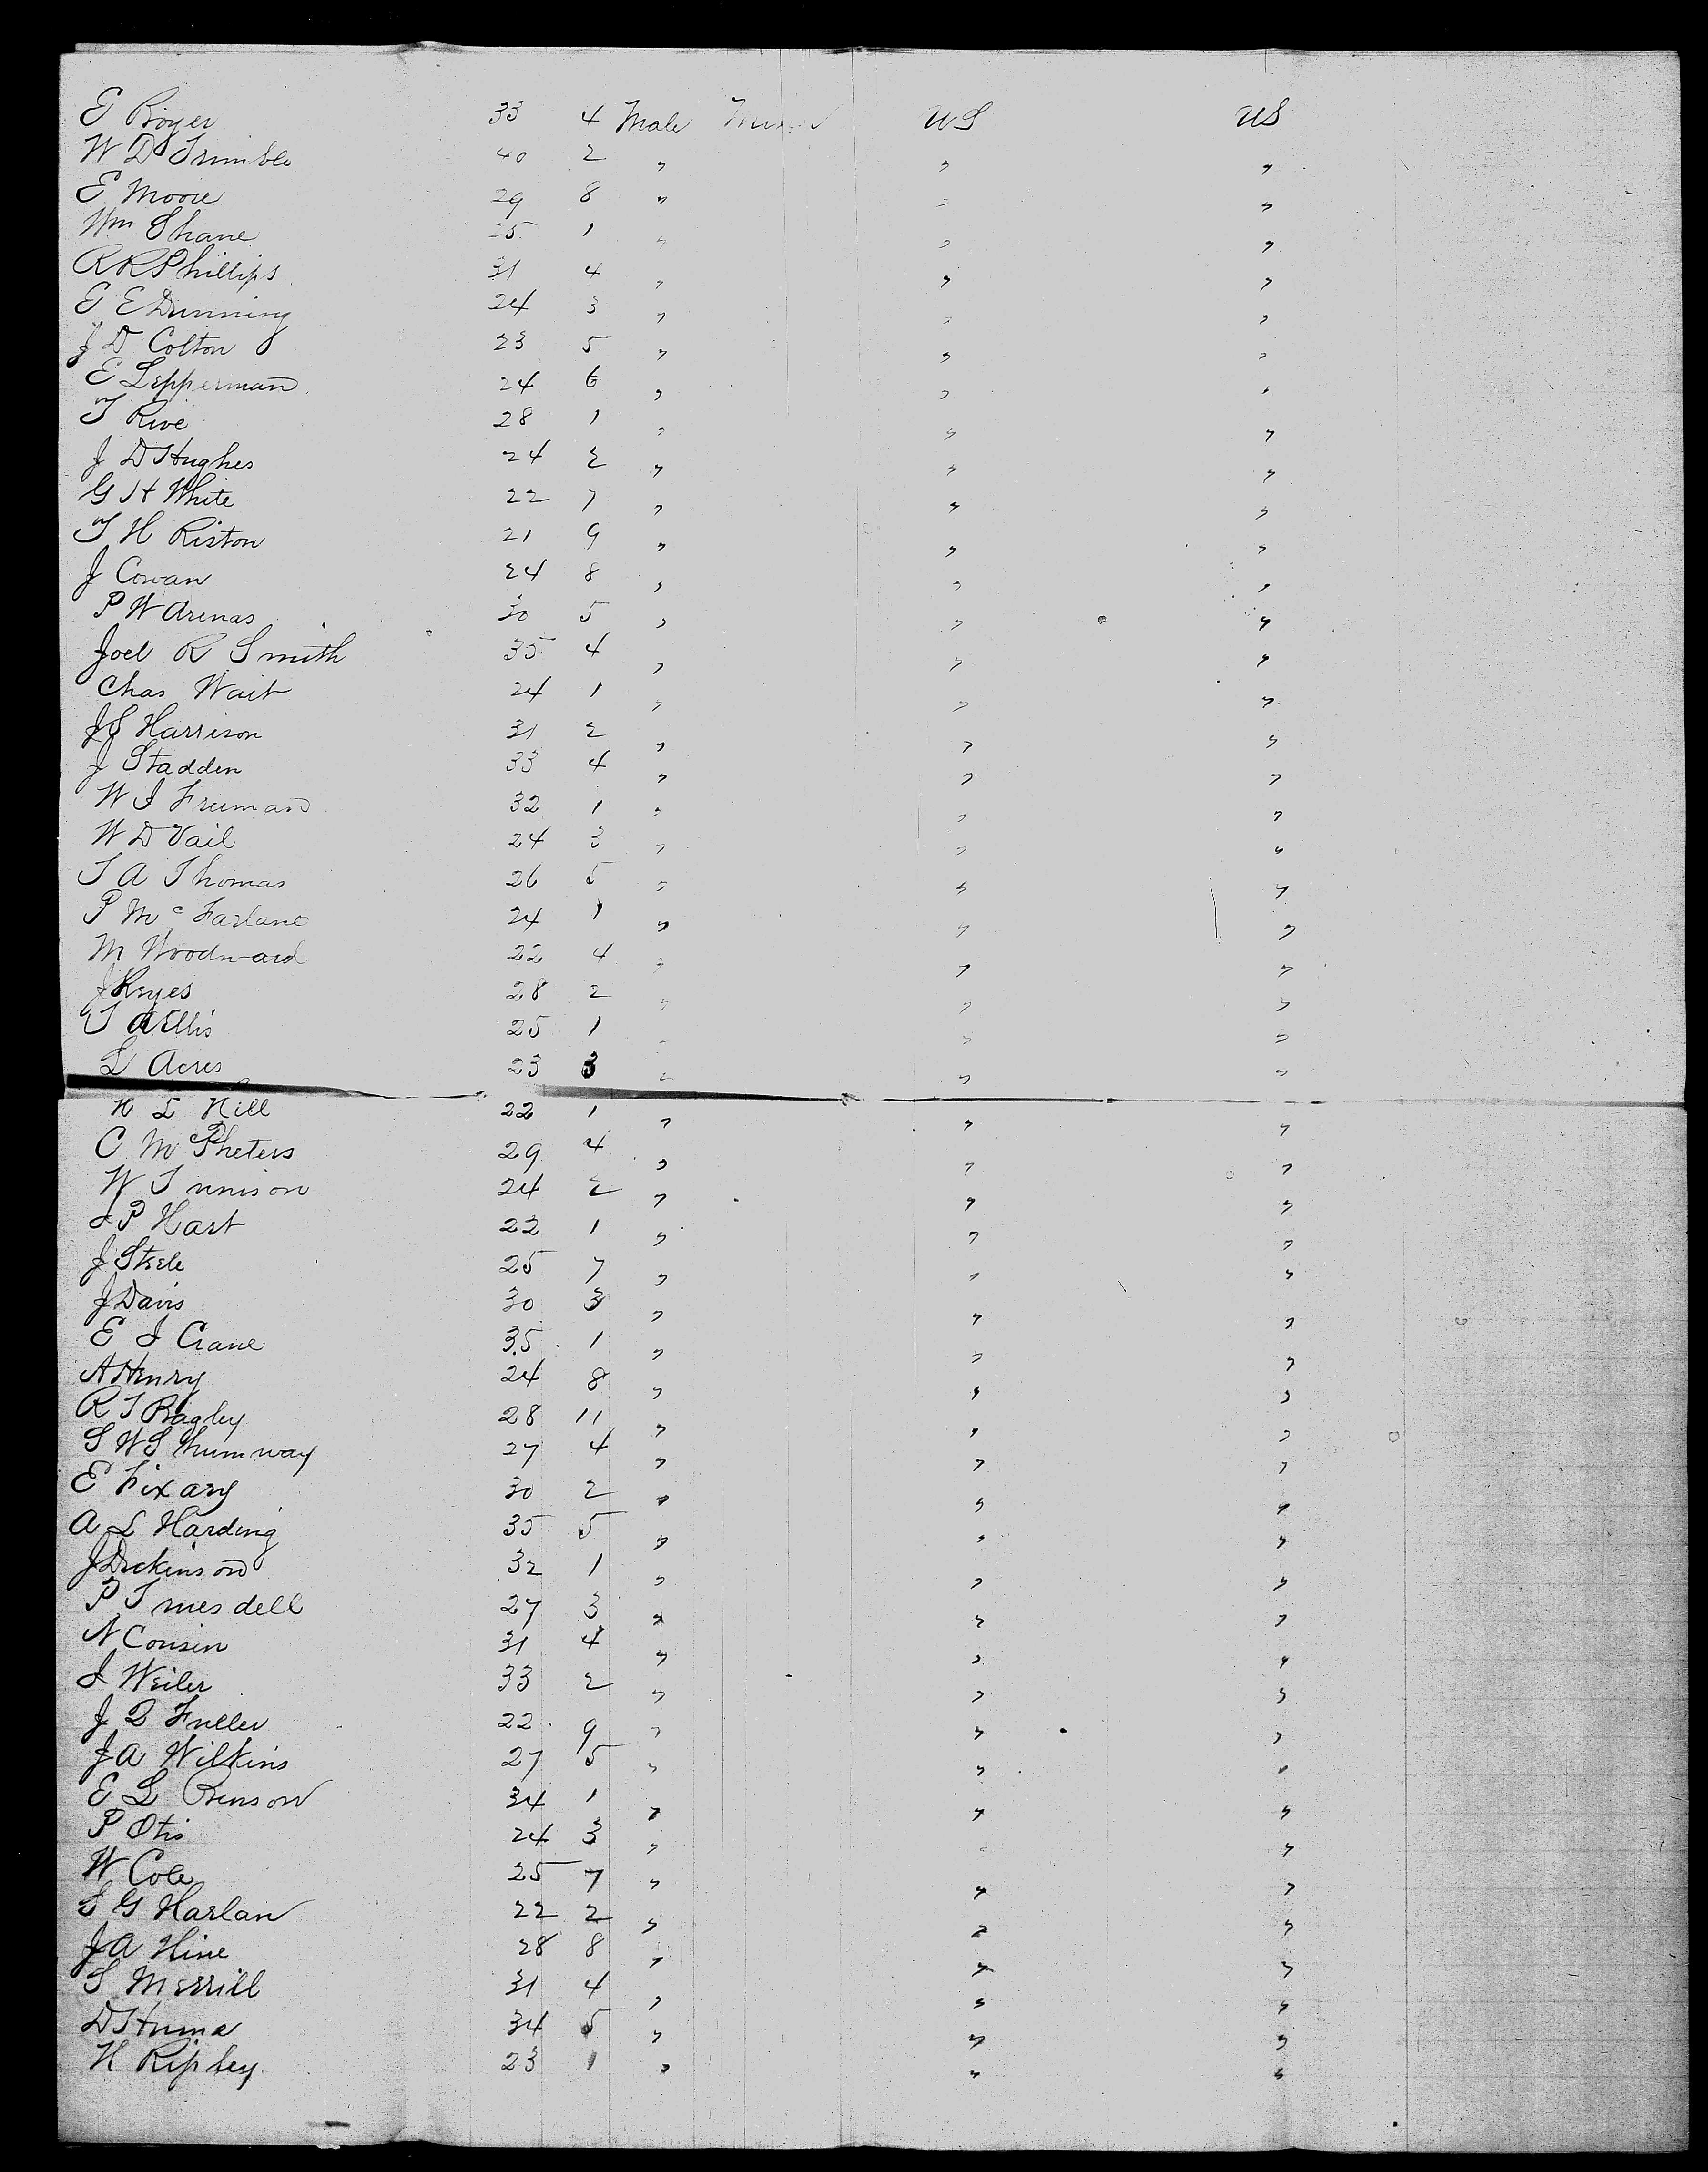 E Boyer 33 4 Male Miner US US
W D Trimble 40 2 " " "
E Moore 29 8 " " "
Wm Shane 25 1 " " "
R R Phillips 31 4 " " "
E E Dunning 24 3 " " "
J D Colton 23 5 " " "
E Lepperman 24 6 " " "
T Rive 28 1 " " "
J D Hughes 24 2 " " "
G H White 22 7 " " "
T H Riston 21 9 " " "
J Cowan 24 8 " " "
P W Arenas 30 5 " " "
Joel R Smith 35 4 " " "
Chas Wait 24 1 " " "
J S Harrison 31 2 " " "
J Stadden 33 4 " " "
W I Freeman 32 1 " " "
W D Vail 24 3 " " "
T A Thomas 26 5 " " "
P Mc Farlane 24 1 " " "
M Woodward 22 4 " " "
J Keyes 28 2 " " "
T A Ellis 25 1 " " "
L Acres 23 3 " " "
H L Hill 22 1 " " "
C McPheters 29 4 " " "
W Tunison 24 2 " " "
I P Hart 22 1 " " "
J Steele 25 7 " " "
J Davis 30 3 " " "
E I Crane 35 1 " " "
A Henry 24 8 " " "
R T Bagley 28 11 " " "
S W Shumway 27 4 " " "
E Fixary 30 2 " " "
A L Harding 35 5 " " "
J Dickinson 32 1 " " "
P Truesdell 27 3 " " "
N Cousin 31 4 " " "
I Weiler 33 2 " " "
J Q Fuller 22 9 " " "
J A Wilkins 27 5 " " "
E L Benson 34 1 " " "
P Otis 24 3 " " "
W Cole 25 7 " " "
S G Harlan 22 2 " " "
J A Hine 28 8 " " "
S Merrill 31 4 " " "
D Hume 34 5 " " "
H Ripley 23 1 " " "